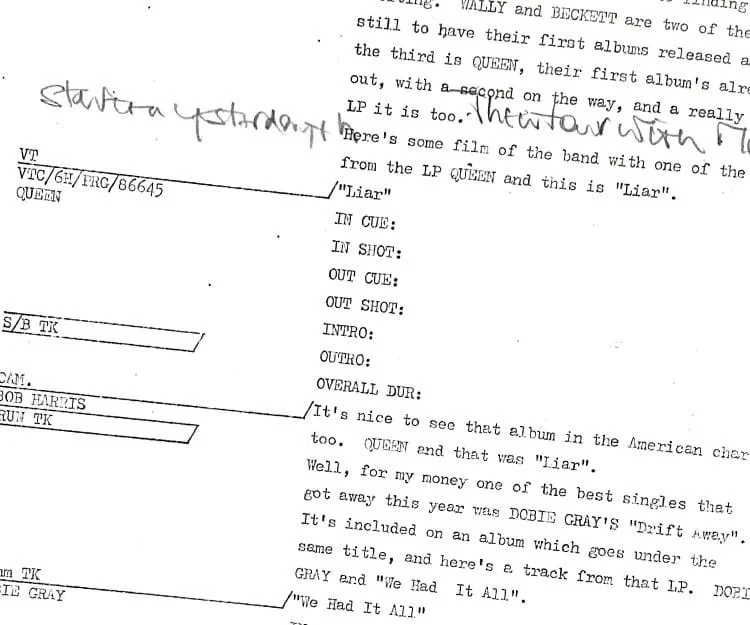 finding
WALLY and BECKETT are two of the
still to have their first albums released a
the third is QUEEN, their first album's alre
out, with a second on the way, and a really
LP it is too. Their tour with
Starting yesterday
Here's some film of the band with one of the
from the LP QUEEN and this is "Liar".
VT
VTC/6H/PRG/86645
QUEEN
"Liar"
IN CUE:
IN SHOT:
OUT CUE:
OUT SHOT:
INTRO:
OUTRO:
OVERALL DUR:
S/B TK
CAM.
BOB HARRIS
RUN TK
It's nice to see that album in the American char
too. QUEEN and that was "Liar".
Well, for my money one of the best singles that
got away this year was DOBIE GRAY'S "Drift Away".
It's included on an album which goes under the
same title, and here's a track from that LP. DOBI
GRAY and "We Had It All".
TK
BIE GRAY
"We Had It All"